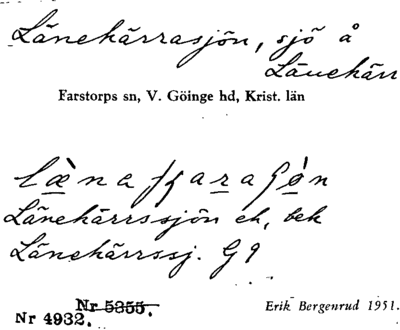 Länekärrasjön, sjö å
Länekärr
Farstorps sn, V. Göinge hd, Krist. län
Länekärrssjön ek, bek
Länekärrssj. G 9
Nr 5355.
Nr 4932.
Erik Bergenrud 1951.